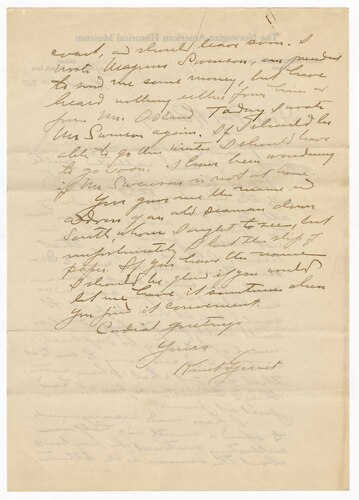 coast, and should leave soon. I
wrote Magnus Swenson, our president
to send me some money, but have
heard nothing either from him or
from Mr. Today I wrote
Mr. Swenson again. If I should be
able to go this winter I should have
to go soon. I have been wondering
if Mr. Swenson is not at home.
You gave me the name and
address of an old seaman down
South, whom I ought to see, but
unfortunately I lost the slip of
paper. If you have the name
I should be glad if you would
let me have it sometime when
you find it convenient.
Cordial greetings
Yours
Knut Gjerset